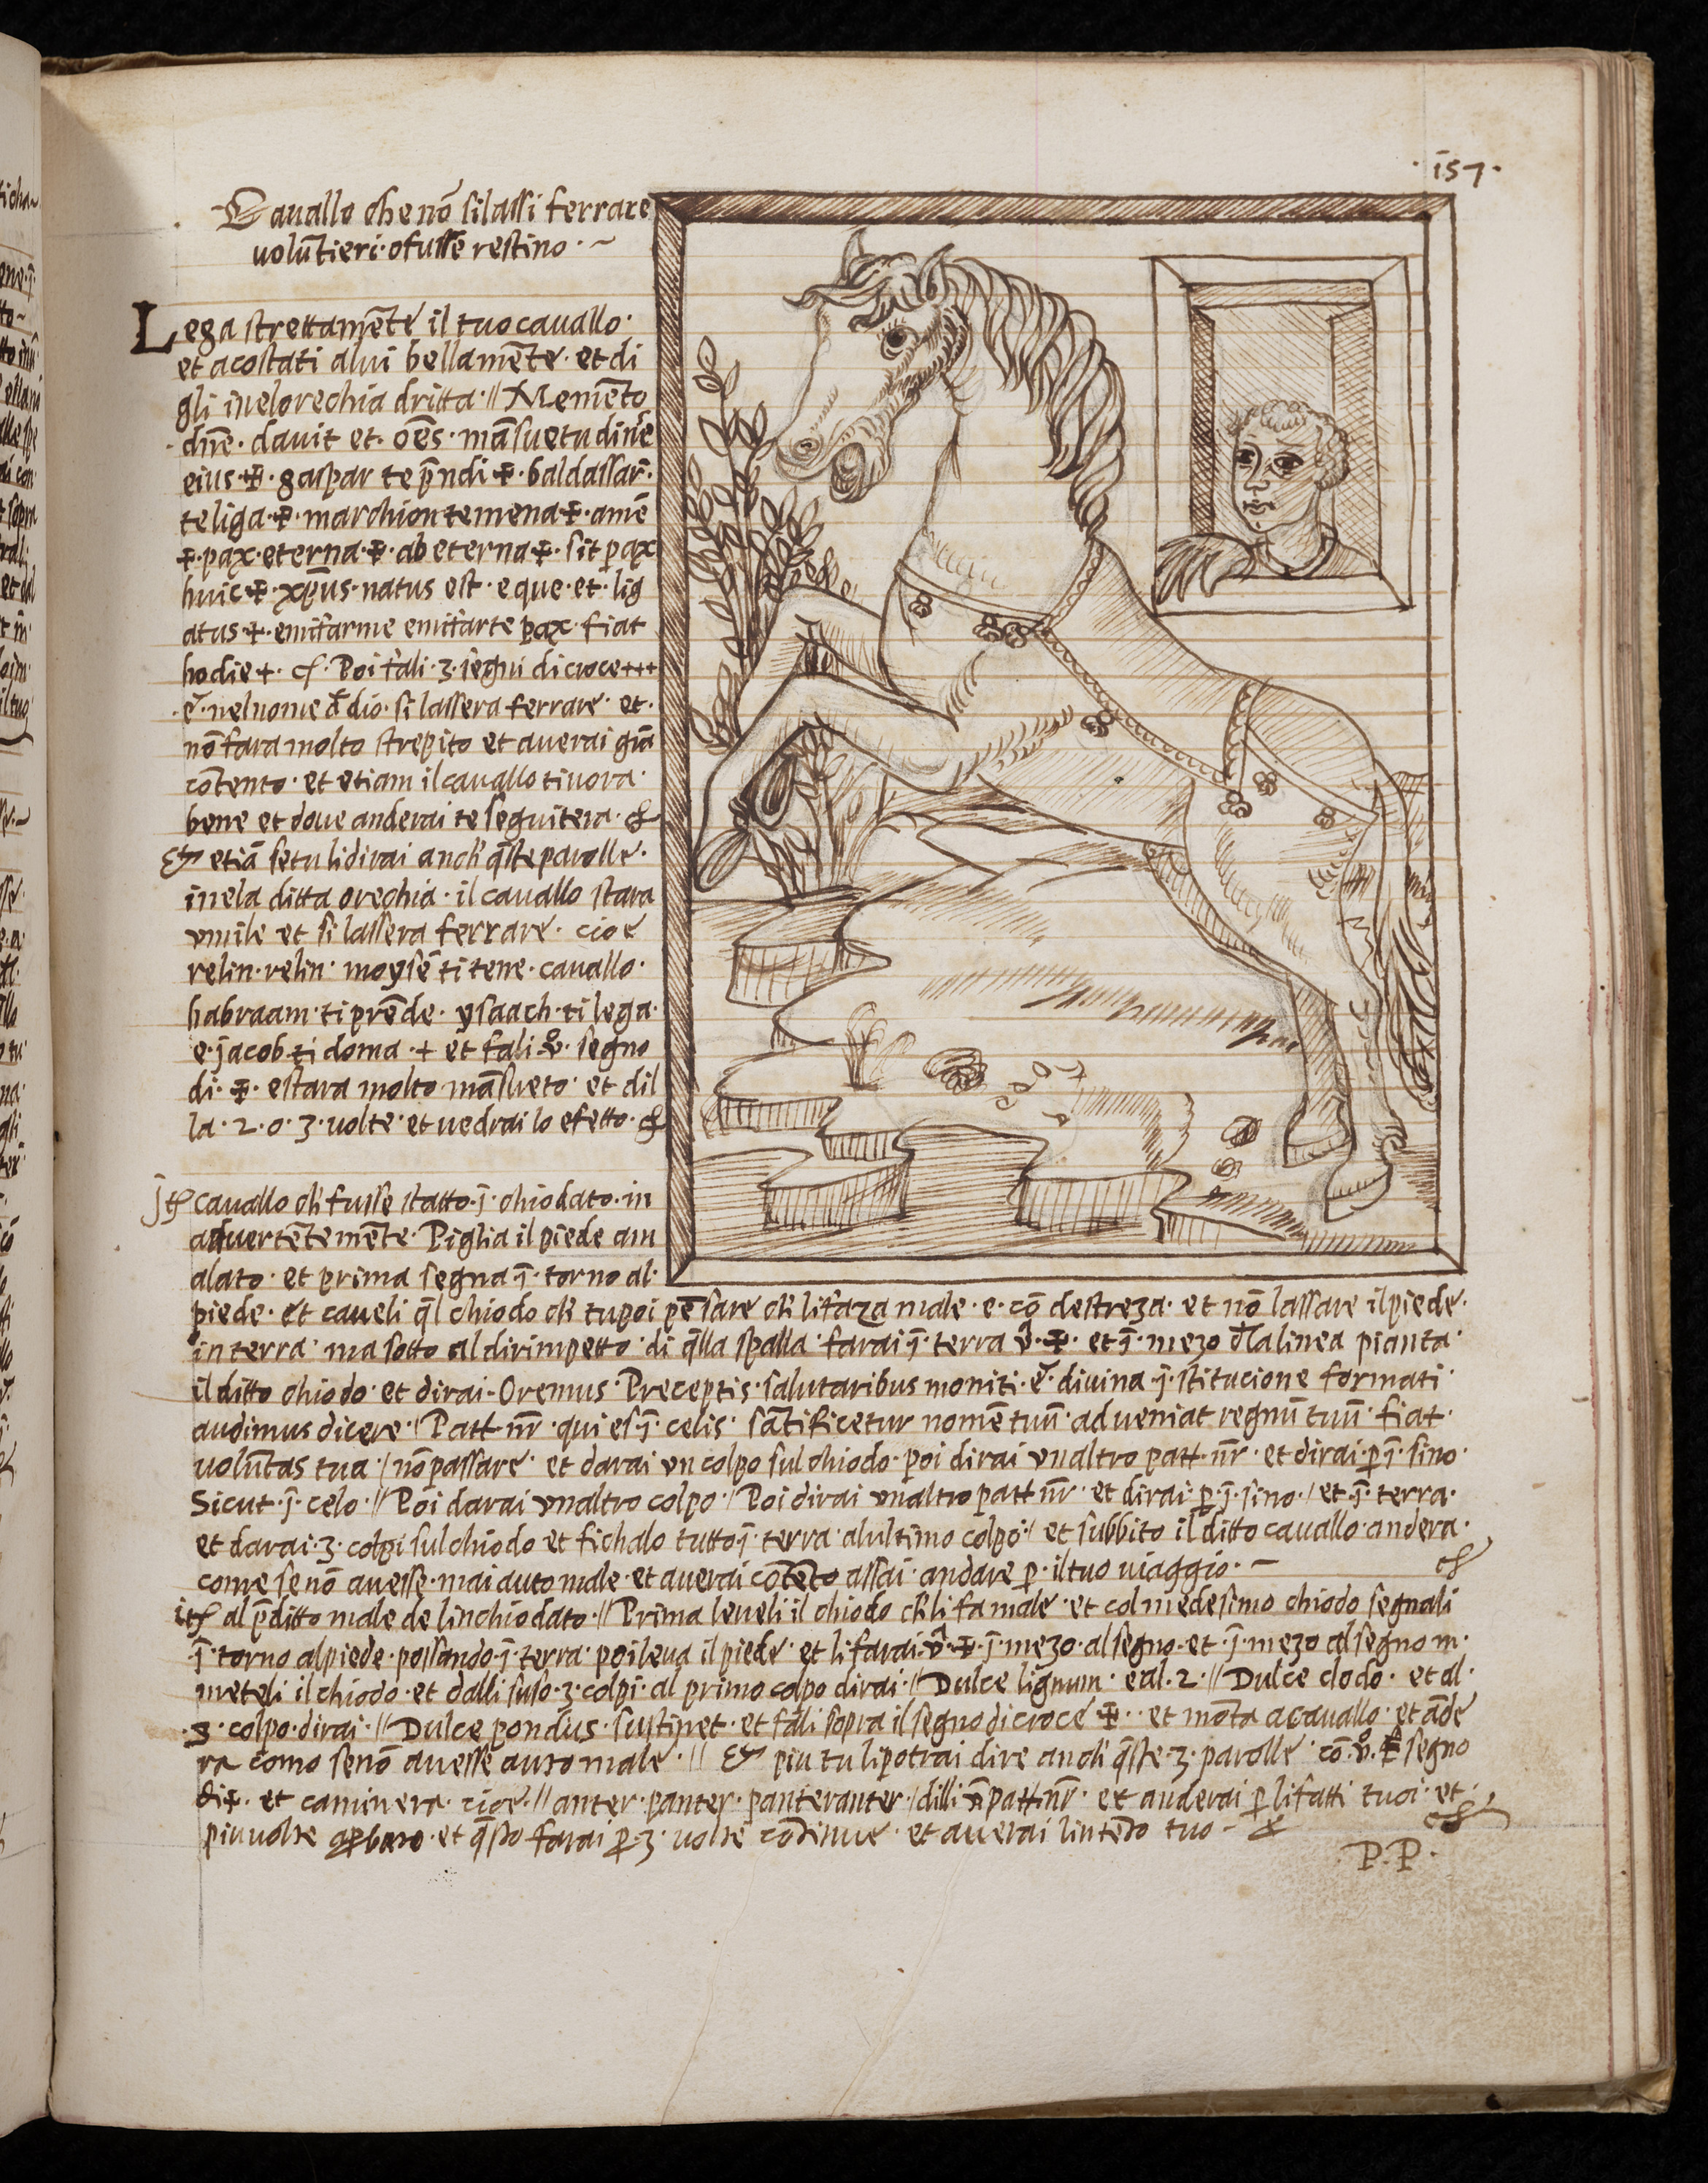 .157.
Cauallo che nō si lassi ferrare
volūtieri · o fusse restino · ~
Lega strettamēte il tuo cauallo ·
et acostati a lui bellamēte · et di
gli inelorechia dritta · // Memēto
· dn̄e · dauit et · oēs · māsuetudine
eius · ✠ · gaspar te pn̄di ✠ · baldassar̄ ·
te liga · ✠ · marchion te mena · ✠ · amē
✠ · pax · eterna · ✠ · ab eterna · ✠ · sit pax
huic ✠ · xp̄us · natus est · eque · et · lig
atus · + · emitarme emitarte pax · fiat
hodie + · Poi fali · 3 · segni di croce +++
· e · nel nome d̄ dio · si lassera ferrare · et ·
nō fara molto strepito et auerai grā
cōtento · et etiam il cauallo ti vora ·
bene et doue anderai te seguitera ·
Et etiā se tu li dirai anch' q̄ste parolle ·
inela ditta orechia · il cauallo stara
vmile et si lassera ferrare · cioe
relin · relin · moysē ti tene · cauallo ·
habraam · ti prēde · ysaach · ti lega ·
e · jacob ti doma · + et fali · v̊ · segno
di · ✠ · e stara molto māsueto · et dil
la · 2 · o · 3 · uolte · et uedrai lo efetto ·
Jt̄ cauallo ch' fusse statto · j̄ · chiodato · in
aduertētemēte · Piglia il piede am
alato · et prima segna j̄ · torno al ·
piede · et caueli q̄l chiodo ch' tu poi pēsare ch' li faza male · e · cō destreza · et nō lassare il piede ·
in terra · ma sotto al dirimpetto · di q̄lla spalla · farai j̄ · terra v̊ · ✠ · et j̄ · mezo d̄la linea pianta ·
il ditto chiodo · et dirai · Oremus · Preceptis · salutaribus moniti · e · diuina j̄ · stitucione formati ·
audimus dicere · / Patt · nr̄ · qui es j̄ · celis · sātificetur nomē tuū · adueniat regnū tuū · fiat ·
uolūtas tua · / nō passare · et darai vn colpo sul chiodo · poi dirai vnaltro patt · nr̄ · et dirai · p̄ j̄ · sino ·
Sicut · j̄ · celo · // Poi darai vnaltro colpo · / Poi dirai vnaltro patt nr̄ · et dirai · p̄ · j̄ · sino · / et j̄ · terra ·
et darai · 3 · colpi sul chiodo et fichalo tutto j̄ · terra · alultimo colpo · / et subbito il ditto cauallo andera ·
come se nō auesse · mai auto male · et auerai cōtēto assai · andare p̄ · il tuo uiaggio · ~
it̄ al p̄ditto male de linchiodato · // Prima leueli il chiodo ch' li fa male · et col medesimo chiodo segnali
· j̄ · torno al piede · possando · j̄ · terra · poi leua il piede · et li farai · v̊ · ✠ · j̄ · mezo · al segno · et · j̄ · mezo al segno m ·
meteli il chiodo · et dalli suso · 3 · colpi · al primo colpo dirai · // Dulce lignum · e al · 2 · // Dulce clodo · et al ·
· 3 · colpo · dirai · // Dulce pondus · sustinet · et fali sopra il segno di croce ✠ · · et mōta a cauallo · et āde
ra como se nō auesse auto male · // Et piu tu li potrai dire anch' q̄ste · 3 · parolle · cō · v̊ · segno
di ✠ · et caminera · cioe · // anter · panter · panteranter · / dilli n̄ patt · nr̄ · et anderai p̄ li fatti tuoi · et ·
piu uolte · et q̄sto farai p̄ · 3 · uolte cōtinue · et auerai lintēto tuo ~
P. P.